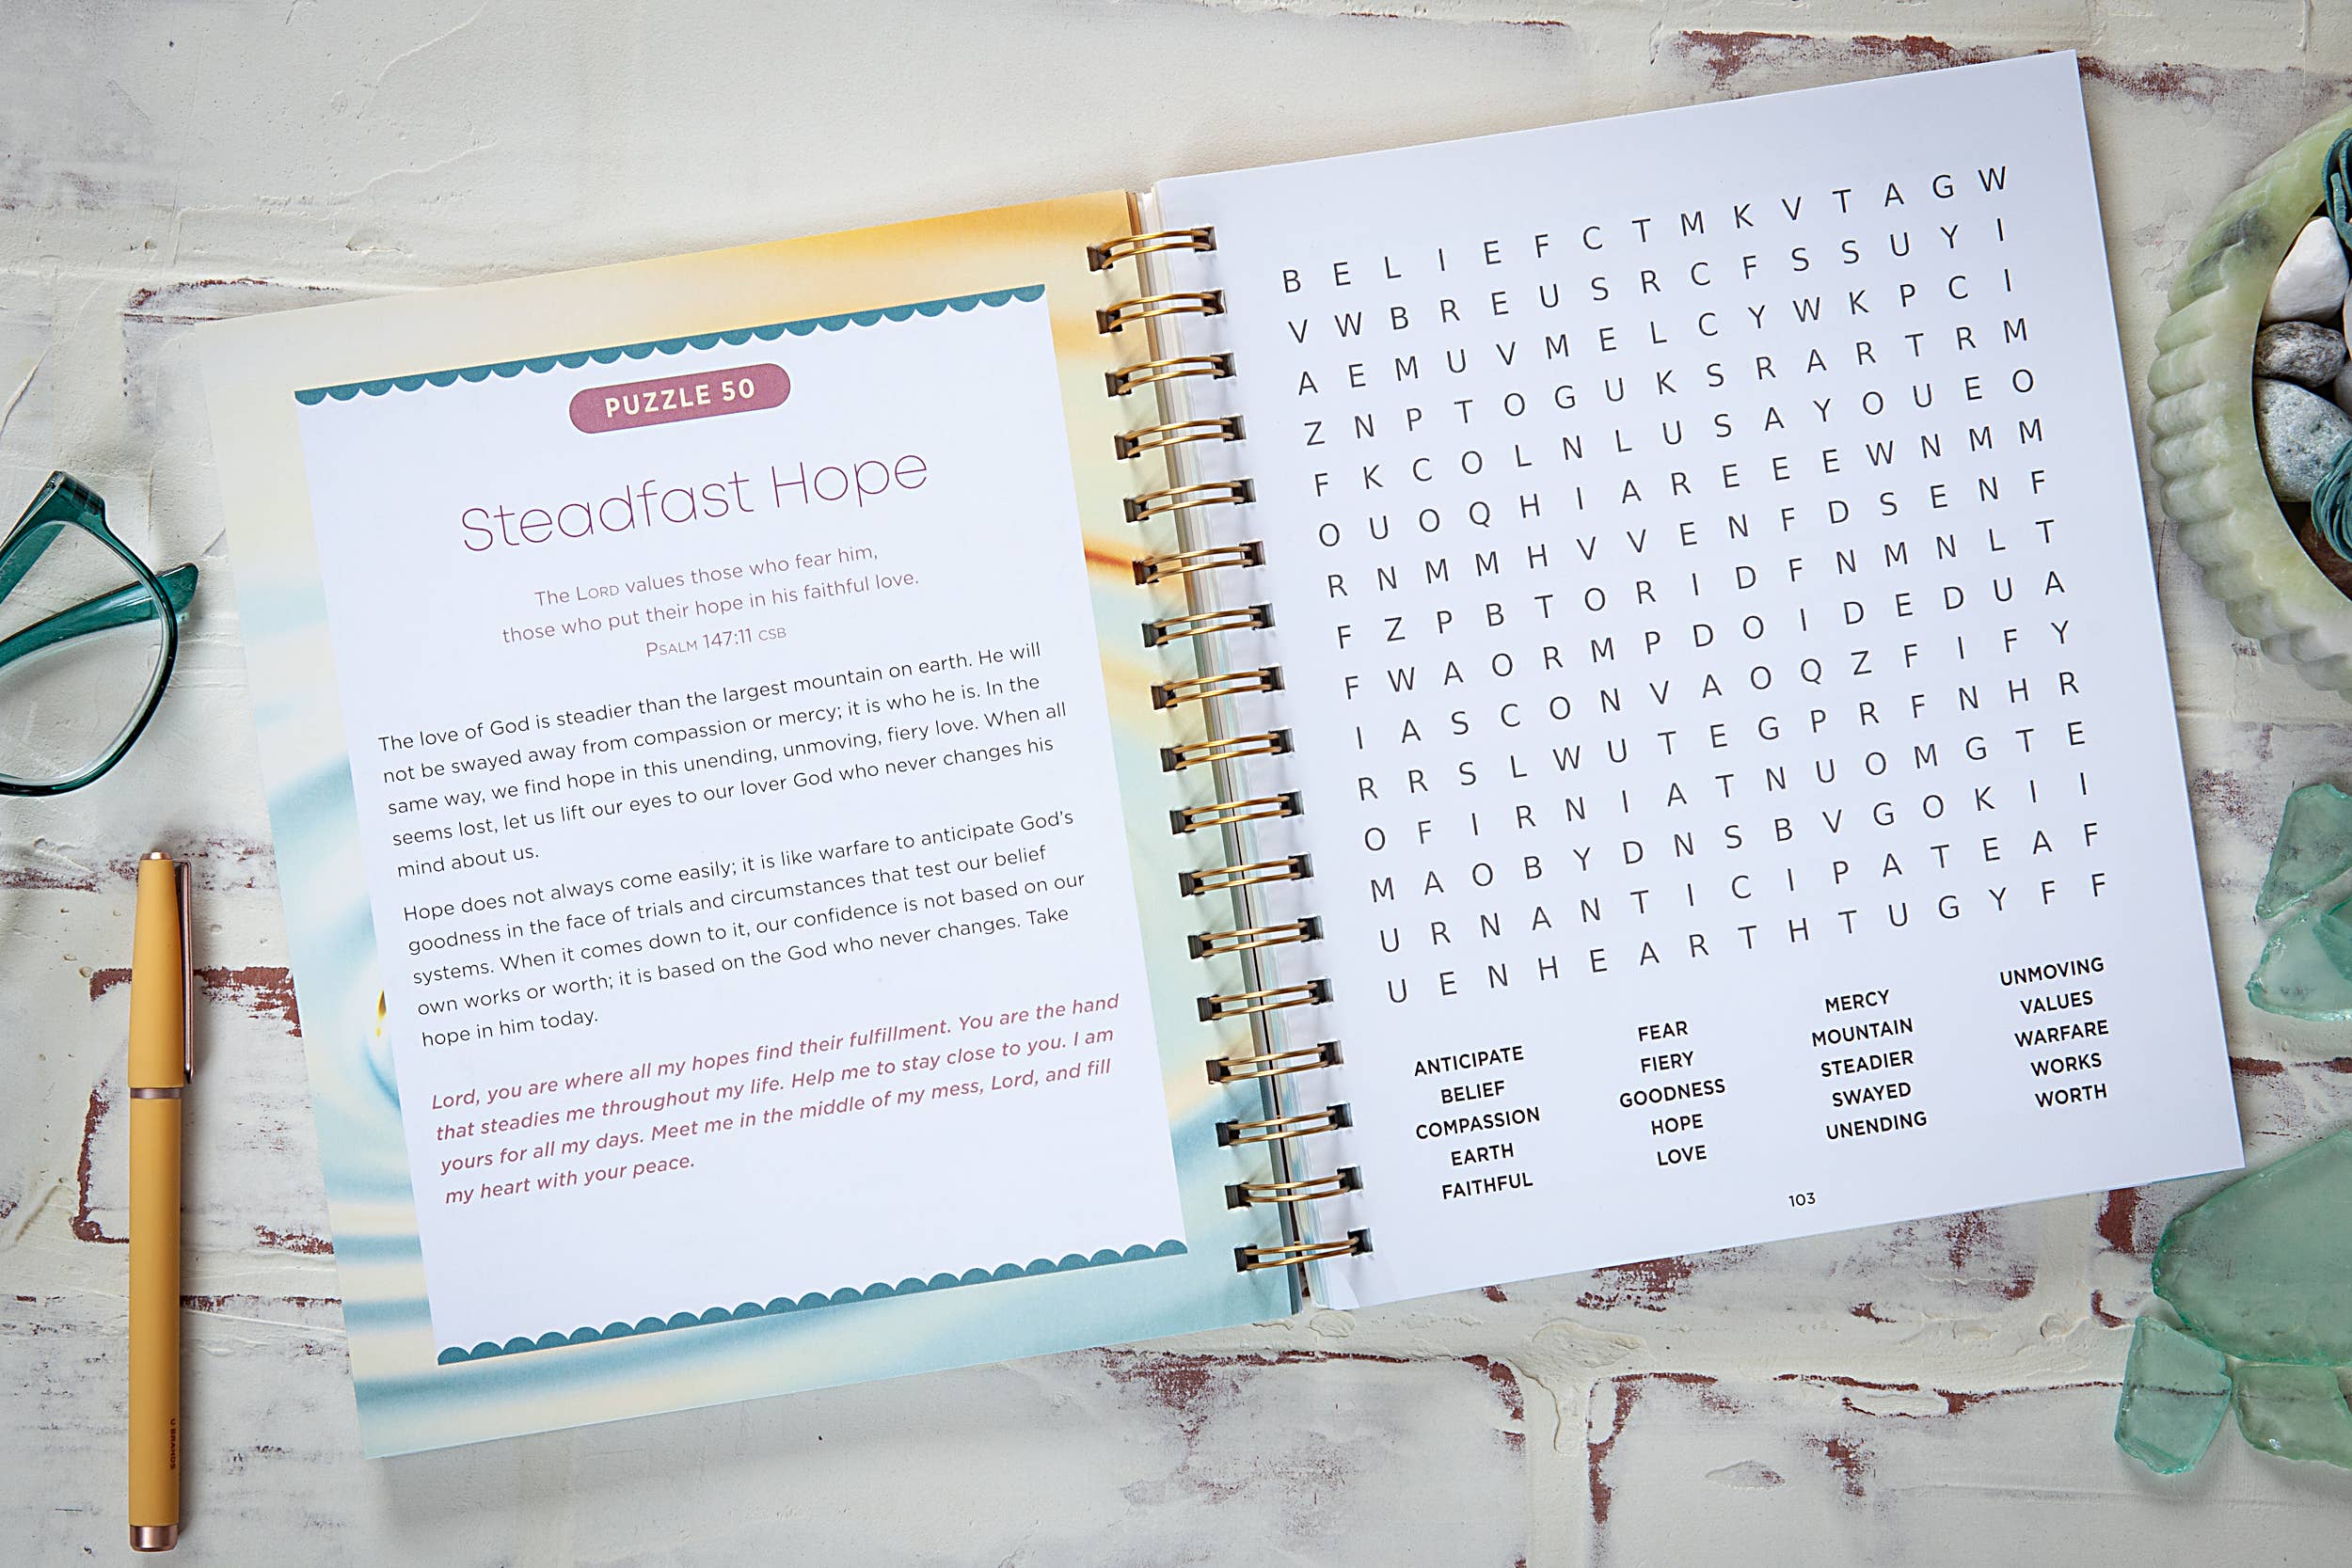 PUZZLE 50
Steadfast Hope
The LORD values those who fear him,
those who put their hope in his faithful love.
PSALM 147:11 CSB
The love of God is steadier than the largest mountain on earth. He will
not be swayed away from compassion or mercy; it is who he is. In the
same way, we find hope in this unending, unmoving, fiery love. When all
seems lost, let us lift our eyes to our lover God who never changes his
mind about us.
Hope does not always come easily; it is like warfare to anticipate God's
goodness in the face of trials and circumstances that test our belief
systems. When it comes down to it, our confidence is not based on our
own works or worth; it is based on the God who never changes. Take
hope in him today.
Lord, you are where all my hopes find their fulfillment. You are the hand
that steadies me throughout my life. Help me to stay close to you. I am
yours for all my days. Meet me in the middle of my mess, Lord, and fill
my heart with your peace.
B E L I E F C T M K V T A G W
V W B R E U S R C F S S U Y I
A E M U V M E L C Y W K P C I
Z N P T O G U K S R A R T R M
F K C O L N L U S A Y O U E O
O U O Q H I A R E E E W N M M
R N M M H V V E N F D S E N F
F Z P B T O R I D F N M N L T
F W A O R M P D O I D E D U A
I A S C O N V A O Q Z F I F Y
R R S L W U T E G P R F N H R
O F I R N I A T N U O M G T E
M A O B Y D N S B V G O K I I
U R N A N T I C I P A T E A F
U E N H E A R T H T U G Y F F
ANTICIPATE
BELIEF
COMPASSION
EARTH
FAITHFUL
FEAR
FIERY
GOODNESS
HOPE
LOVE
MERCY
MOUNTAIN
STEADIER
SWAYED
UNENDING
UNMOVING
VALUES
WARFARE
WORKS
WORTH
103